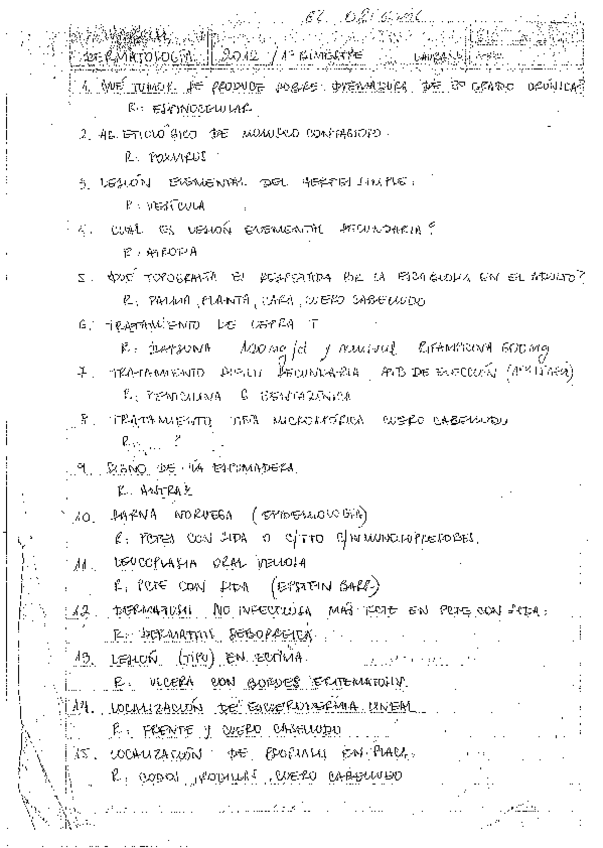 DERMATOLOGÍA 2012 / 1° BIMESTRE
1. QUÉ TUMOR SE PRODUCE SOBRE QUEMADURA DE 3° GRADO CRÓNICA?
R: ESPINOCELULAR
2. AG. ETIOLÓGICO DE MOLUSCO CONTAGIOSO.
R: POXVIRUS
3. LESIÓN ELEMENTAL DEL HERPES SIMPLE:
R: VESÍCULA
4. CUAL ES LESIÓN ELEMENTAL SECUNDARIA?
R: ATROFIA
5. QUÉ TOPOGRAFÍA ES RESPETADA POR LA ESCABIOSIS EN EL ADULTO?
R: PALMA, PLANTA, CARA, CUERO CABELLUDO
6. TRATAMIENTO DE LEPRA T
R: DAPSONA 100 mg/d y mensual RIFAMPICINA 600 mg
7. TRATAMIENTO SÍFILIS SECUNDARIA ATB DE ELECCIÓN (1° LÍNEA)
R: PENICILINA G BENZATÍNICA
8. TRATAMIENTO TIÑA MICROSPÓRICA CUERO CABELLUDO
R: .... ?
9. SIGNO DE LA ESPUMADERA
R: ANTRAX
10. SARNA NORUEGA (EPIDEMIOLOGÍA)
R: PCTES CON SIDA O C/TTO C/INMUNOSUPRESORES.
11. LEUCOPLASIA ORAL VELLOSA
R: PCTE CON SIDA (EPSTEIN BARR)
12. DERMATOSIS NO INFECCIOSA MAS FCTE EN PCTE CON SIDA:
R: DERMATITIS SEBORREICA
13. LESIÓN (TIPO) EN ECTIMA
R: ULCERA CON BORDES ERITEMATOSOS
14. LOCALIZACIÓN DE ESCLERODERMIA LINEAL
R: FRENTE Y CUERO CABELLUDO
15. LOCALIZACIÓN DE PSORIASIS EN PLACA:
R: CODOS, RODILLAS, CUERO CABELLUDO